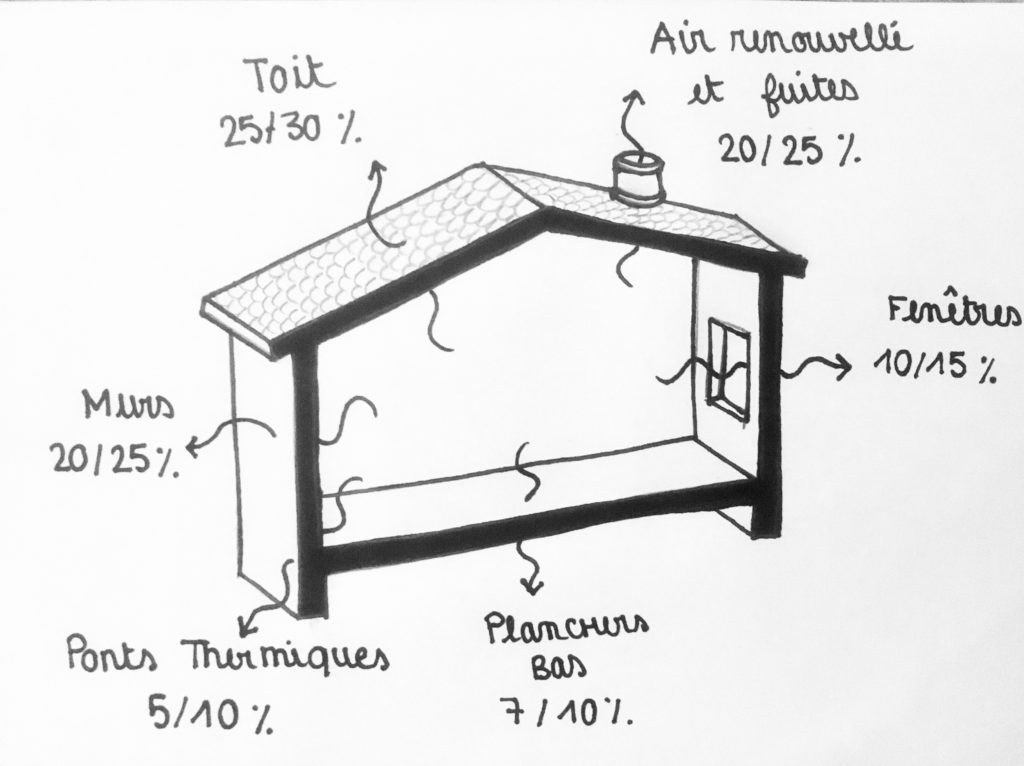 Toit
25/30 %
Air renouvellé
et fuites
20/25 %
Fenêtres
10/15 %
Murs
20/25%
Ponts Thermiques
5/10 %
Planchers
Bas
7/10%